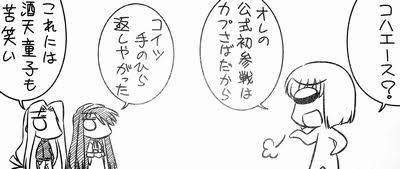 コハエース？
オレの
公式初参戦は
カプさばだから
コイツ
手のひら
返しやがった
これには
酒天童子も
苦笑い